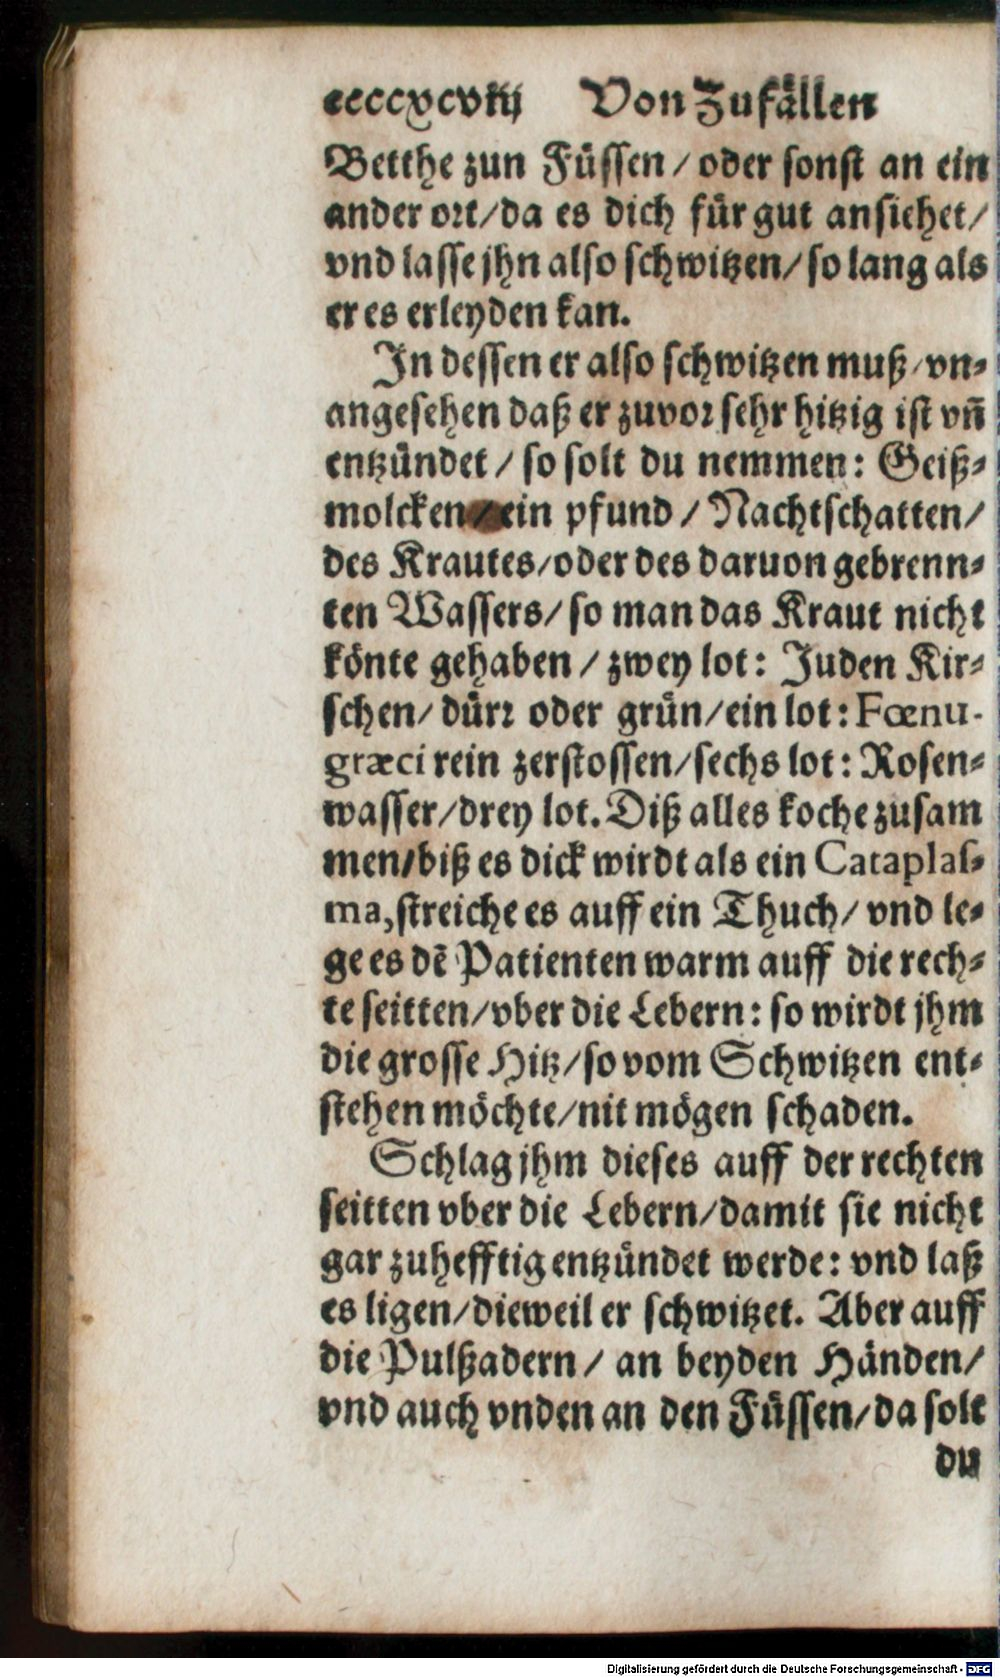 ccccxcviij Von Zufällen
Betthe zun Füssen / oder sonst an ein
ander ort/da es dich für gut ansiehet/
vnd lasse jhn also schwitzen/ so lang als
er es erleyden kan.
In dessen er also schwitzen muß/vn-
angesehen daß er zuvor sehr hitzig ist vñ
entzündet / so solt du nemmen: Geiß-
molcken/ein pfund / Nachtschatten/
des Krautes/oder des daruon gebrenn-
ten Wassers/ so man das Kraut nicht
könte gehaben / zwey lot: Juden Kir-
schen/ dürr oder grün/ein lot: Fœnu-
græci rein zerstossen/sechs lot: Rosen-
wasser/drey lot. Diß alles koche zusam
men/biß es dick wirdt als ein Cataplas-
ma,streiche es auff ein Thuch/ vnd le-
ge es dẽ Patienten warm auff die rech-
te seitten/vber die Lebern: so wirdt jhm
die grosse Hitz/so vom Schwitzen ent-
stehen möchte/nit mögen schaden.
Schlag jhm dieses auff der rechten
seitten vber die Lebern/damit sie nicht
gar zuhefftig entzündet werde: vnd laß
es ligen/dieweil er schwitzet. Aber auff
die Pulßadern / an beyden Händen/
vnd auch vnden an den Füssen/da solt
du
Digitalisierung gefördert durch die Deutsche Forschungsgemeinschaft - DFG